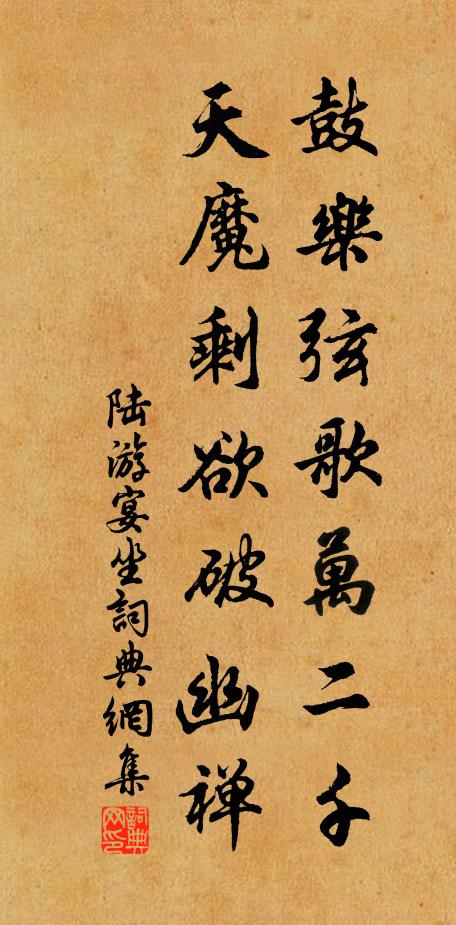 鼓樂弦歌萬二千
天魔剩欲破幽禪
陆游宴坐詞典網集
詞典网印